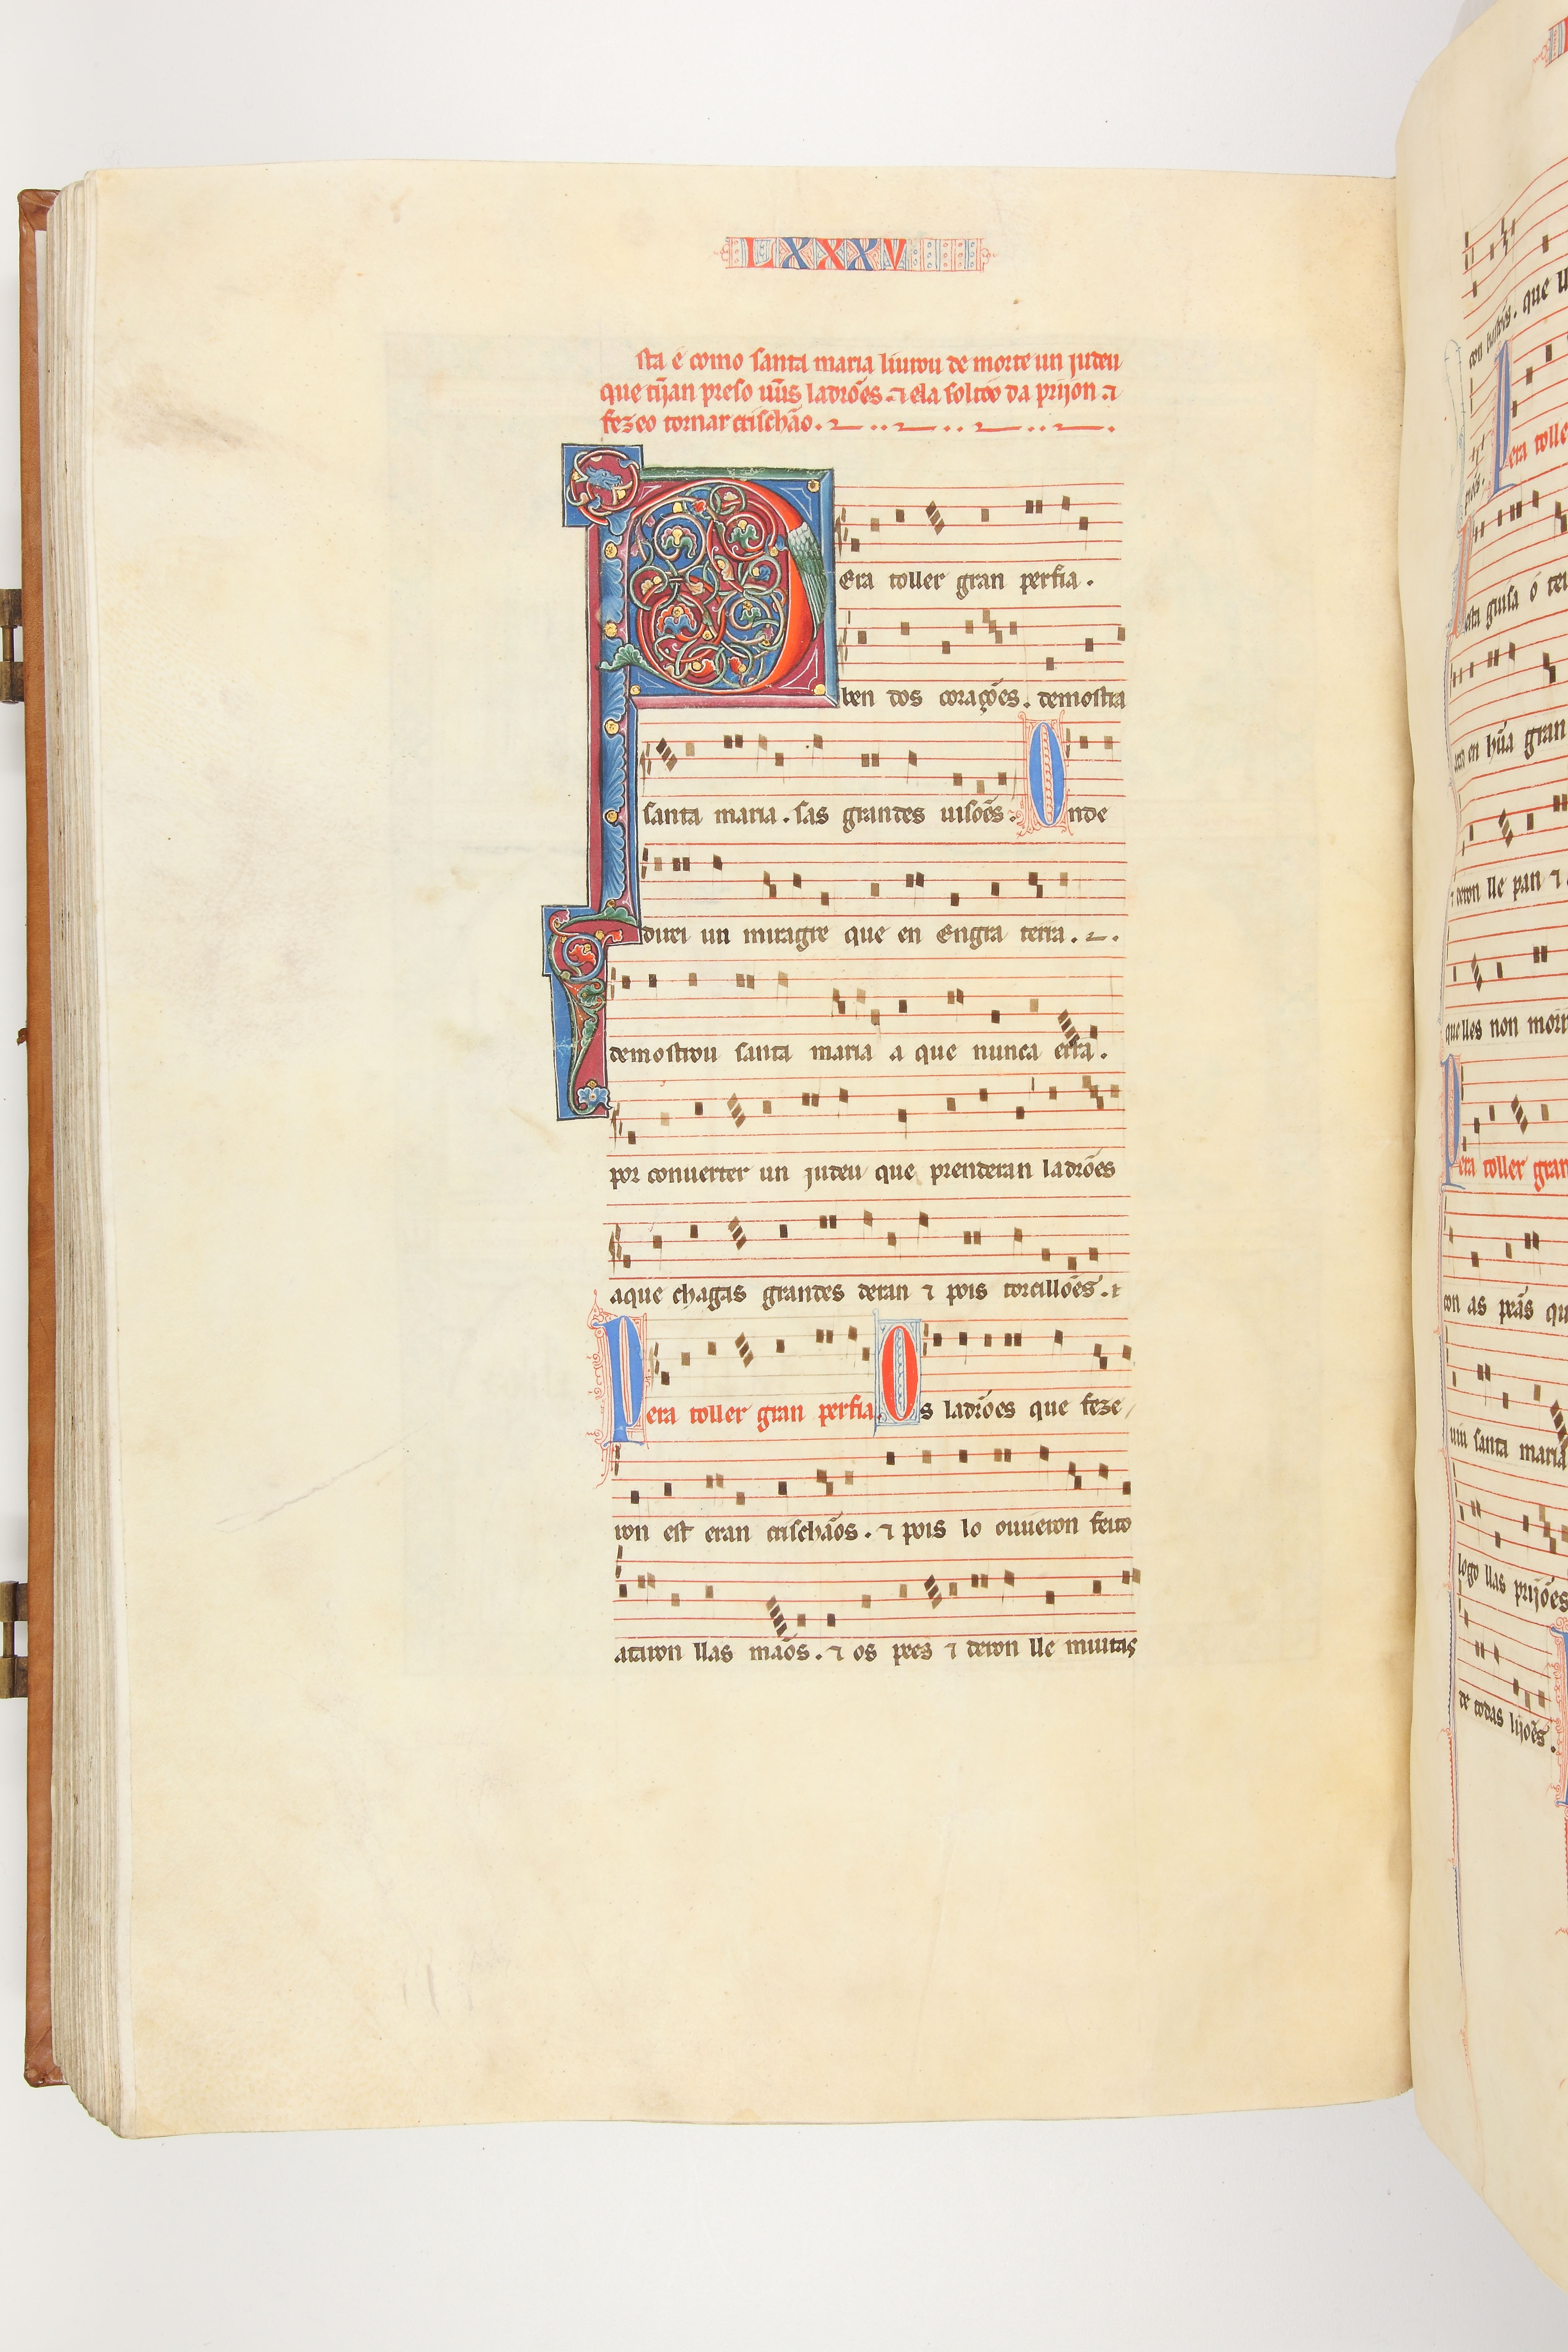 LXXXV
sta é como santa maria liurou de morte un judeu
que tijnan preso uũs ladrões. ⁊ ela soltoo da prijon ⁊
fezeo tornar crischão.
PEra toller gran perfia.
ben dos corações. demostra
santa maria. sas grandes uisões. Onde
direi un miragre que en Engra terra.
demostrou santa maria a que nunca erra.
por conuerter un judeu que prenderan ladrões
aque chagas grandes deran ⁊ pois torcillões. ⁊
Pera toller gran perfia. Os ladrões que feze
ron est eran crischãos. ⁊ pois lo ouueron feito
ataron llas mãos. ⁊ os pees ⁊ deron lle muitas
que
Pera tolle
esta guisa
en hũa gran
⁊ deron lle pan ⁊
que lles non morr
Pera toller gran
con as peas qu
uiu santa maria
logo llas prijões
de todas lijões.